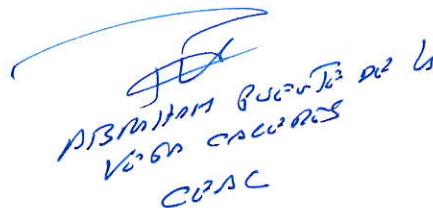 ABRAHAM PUENTE DE LA
VEGA CACERES
CEAC